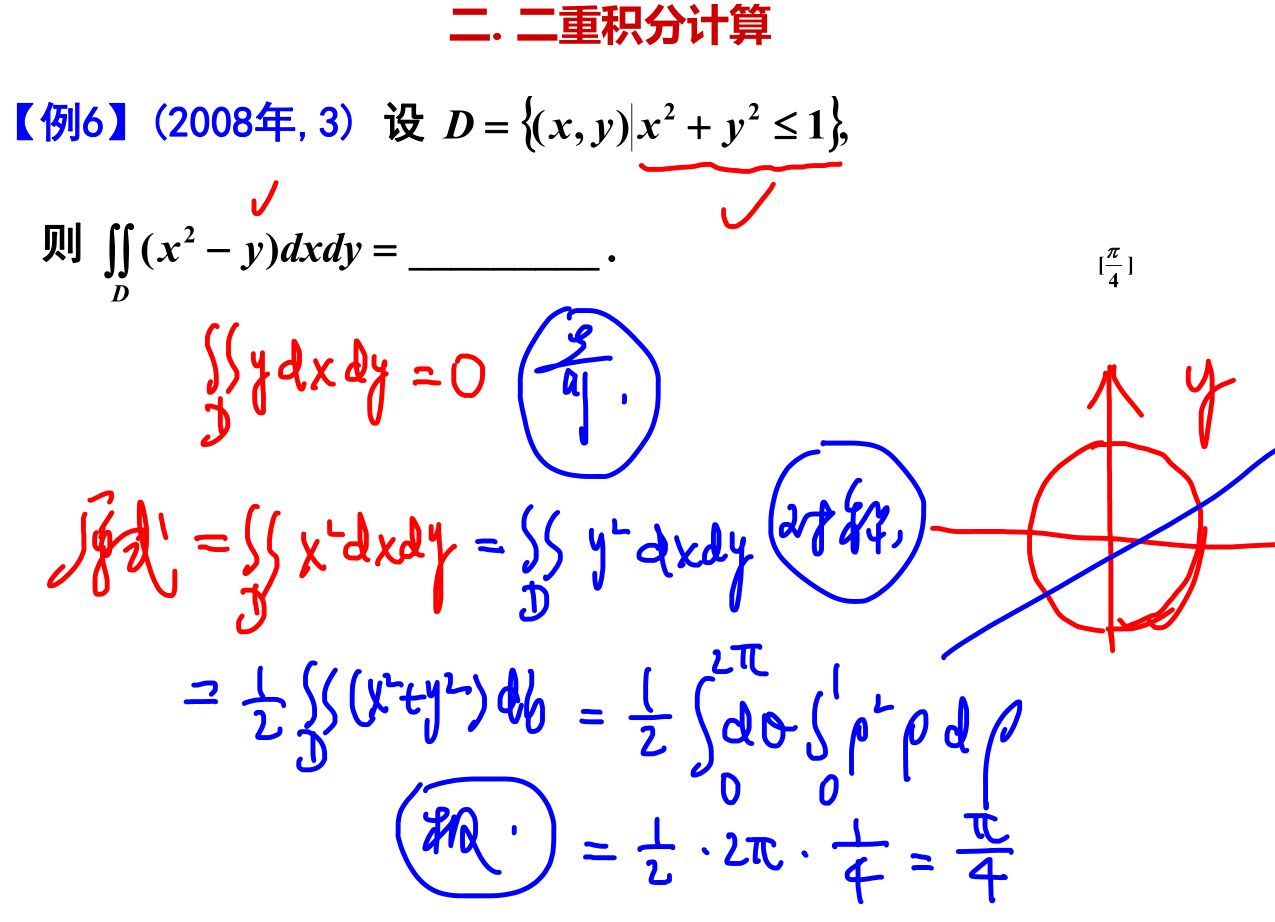 二. 二重积分计算
【例6】(2008年,3) 设 D = {(x, y)|x² + y² ≤ 1},
则 ∬_D (x² − y)dxdy = _________ .
[π/4]
∬_D y dx dy = 0
y
原式 = ∬_D x² dxdy = ∬_D y² dxdy 对称,
= 1/2 ∬_D (x²+y²) dσ = 1/2 ∫_0^{2π} dθ ∫_0^1 ρ² ρ dρ
极.
= 1/2 · 2π · 1/4 = π/4